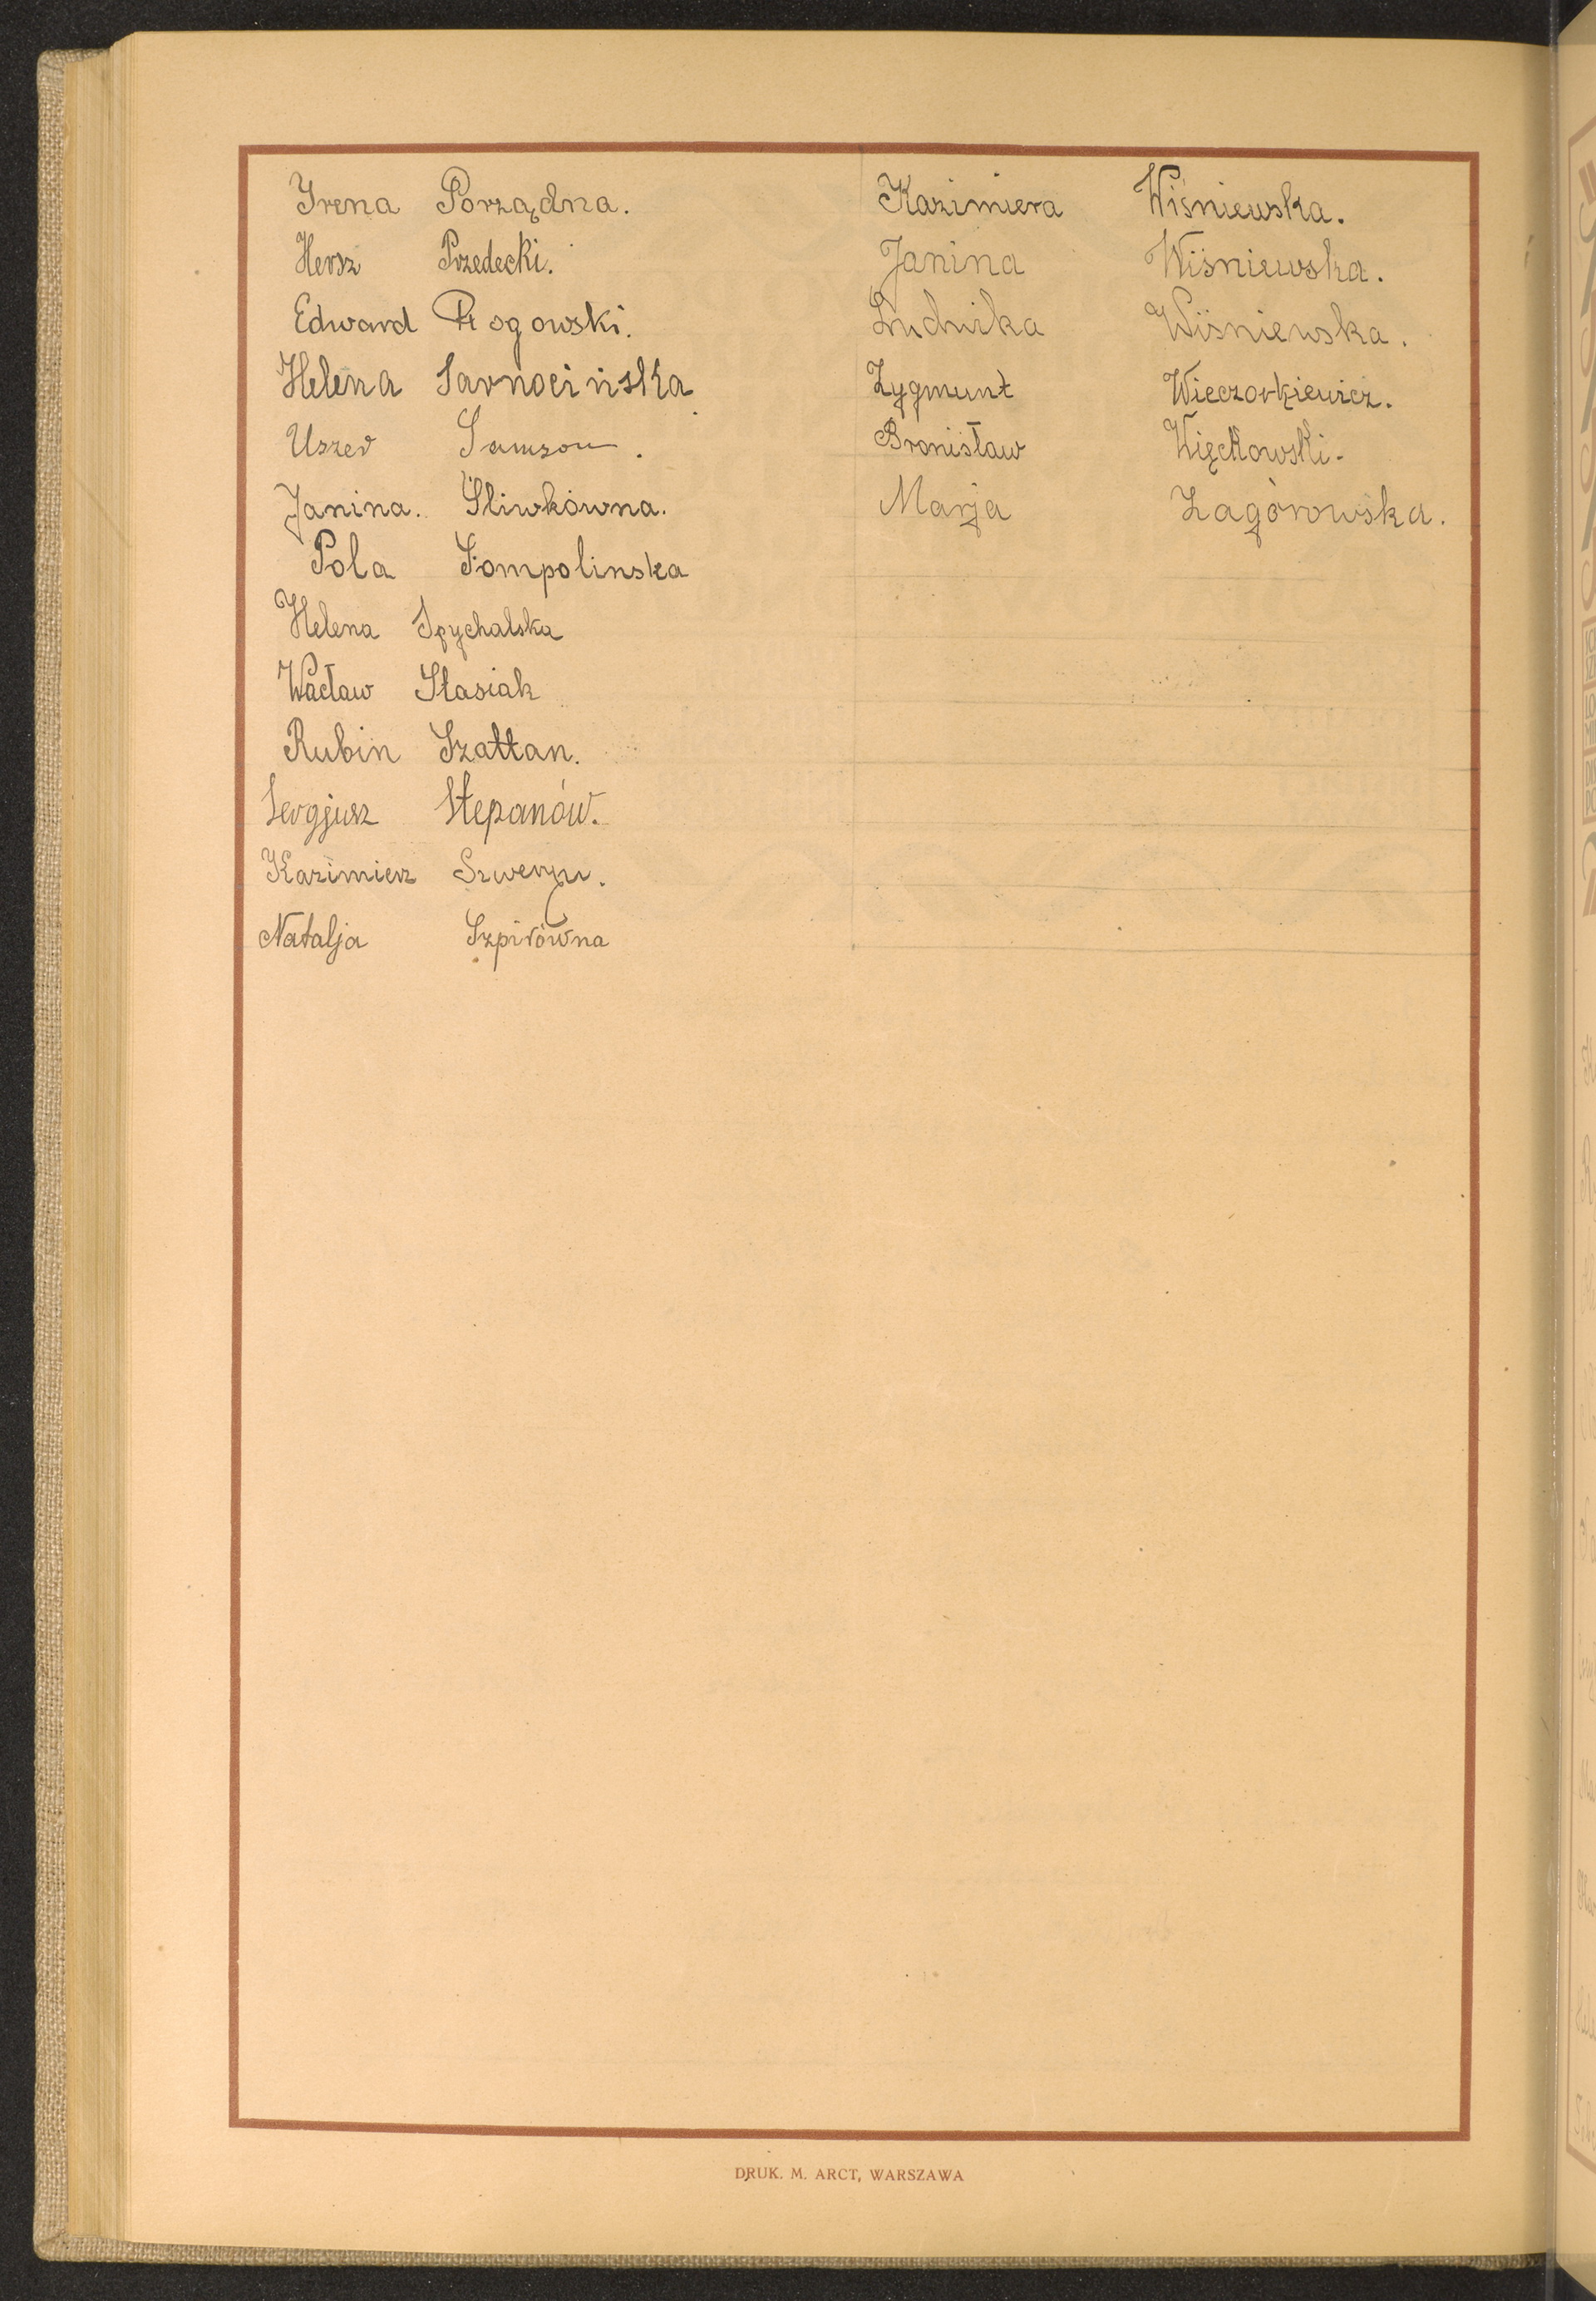 Irena Porządna.
Hersz Przedecki.
Edward Rogowski.
Helena Sarnocińska
Uszer Samson.
Janina. Śliwkówna.
Pola Sompolinska
Helena Spychalska
Wacław Stasiak
Rubin Szattan.
Sergjusz Stepanów.
Kazimierz
Natalja Szpirówna
Kazimiera Wiśniewska.
Janina Wiśniewska.
Ludwika Wiśniewska.
Zygmunt Wieczorkiewicz.
Bronisław Więckowski.
Marja Zagórowska.
DRUK. M. ARCT, WARSZAWA